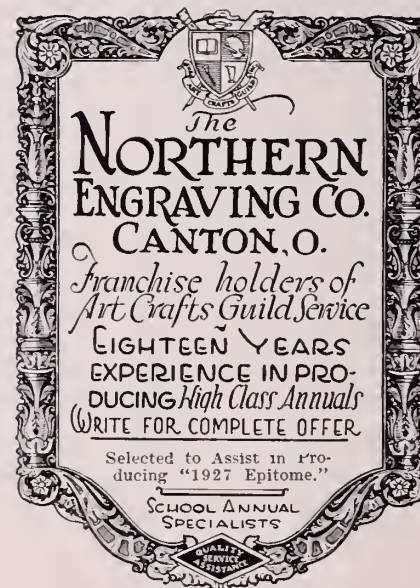 ART CRAFTS GUILD
The
NORTHERN
ENGRAVING CO.
CANTON, O.
Franchise holders of
Art Crafts Guild Service
EIGHTEEN YEARS
EXPERIENCE IN PRO-
DUCING High Class Annuals
WRITE FOR COMPLETE OFFER
Selected to Assist in Pro-
ducing "1927 Epitome."
SCHOOL ANNUAL
SPECIALISTS
QUALITY
SERVICE
ASSISTANCE